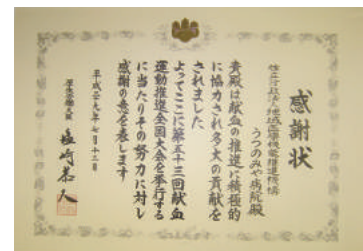 感謝状
独立行政法人地域医療機能推進機構
うつのみや病院殿
貴殿は献血の推進に積極的
に協力され多大の貢献を
されました
よってここに第五十三回献血
運動推進全国大会を挙行する
に当たりその努力に対し
感謝の意を表します
平成二十九年七月十二日
厚生労働大臣 塩崎恭久